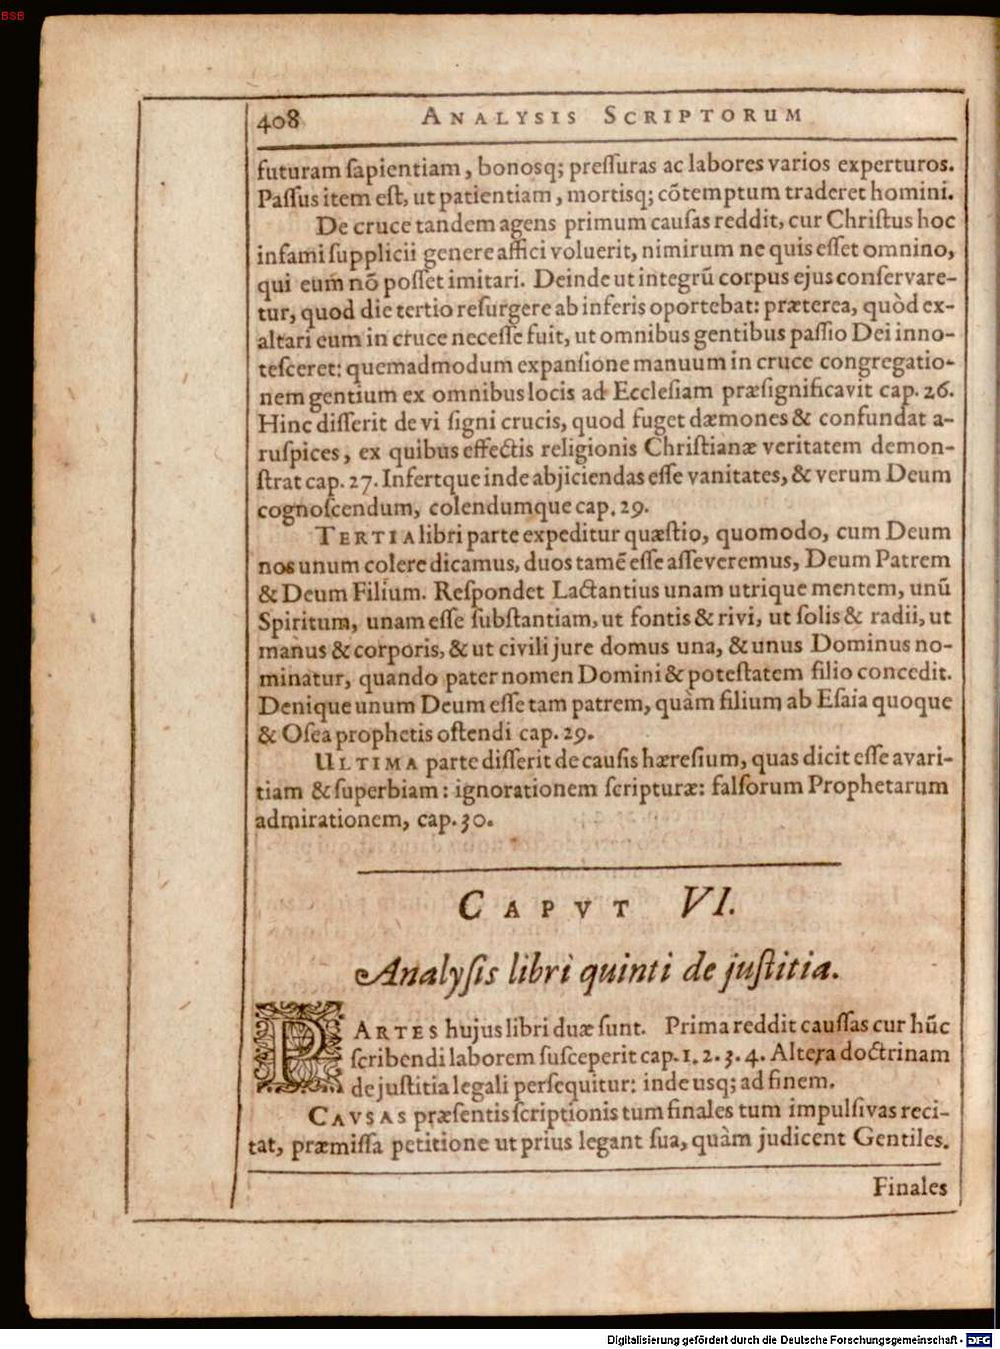 BSB
408 ANALYSIS SCRIPTORUM
futuram ſapientiam, bonosq; preſſuras ac labores varios experturos.
Paſſus item eſt, ut patientiam, mortisq; cõtemptum traderet homini.
De cruce tandem agens primum cauſas reddit, cur Chriſtus hoc
infami ſupplicii genere affici voluerit, nimirum ne quis eſſet omnino,
qui eum nõ poſſet imitari. Deinde ut integrũ corpus ejus conſervare-
tur, quod die tertio reſurgere ab inferis oportebat: præterea, quòd ex-
altari eum in cruce neceſſe fuit, ut omnibus gentibus paſſio Dei inno-
teſceret: quemadmodum expanſione manuum in cruce congregatio-
nem gentium ex omnibus locis ad Eccleſiam præſignificavit cap. 26.
Hinc diſſerit de vi ſigni crucis, quod fuget dæmones & confundat a-
ruſpices, ex quibus effectis religionis Chriſtianæ veritatem demon-
ſtrat cap. 27. Infertque inde abjiciendas eſſe vanitates, & verum Deum
cognoſcendum, colendumque cap. 29.
TERTIA libri parte expeditur quæſtio, quomodo, cum Deum
nos unum colere dicamus, duos tamẽ eſſe aſſeveremus, Deum Patrem
& Deum Filium. Reſpondet Lactantius unam utrique mentem, unũ
Spiritum, unam eſſe ſubſtantiam, ut fontis & rivi, ut ſolis & radii, ut
manus & corporis, & ut civili jure domus una, & unus Dominus no-
minatur, quando pater nomen Domini & poteſtatem filio concedit.
Denique unum Deum eſſe tam patrem, quàm filium ab Eſaia quoque
& Oſea prophetis oſtendi cap. 29.
ULTIMA parte diſſerit de cauſis hæreſium, quas dicit eſſe avari-
tiam & ſuperbiam: ignorationem ſcripturæ: falſorum Prophetarum
admirationem, cap. 30.
CAPVT VI.
Analyſis libri quinti de juſtitia.
PARTES hujus libri duæ ſunt. Prima reddit cauſſas cur hũc
ſcribendi laborem ſuſceperit cap. 1. 2. 3. 4. Altera doctrinam
de juſtitia legali perſequitur: inde usq; ad finem.
CAVSAS præſentis ſcriptionis tum finales tum impulſivas reci-
tat, præmiſſa petitione ut prius legant ſua, quàm judicent Gentiles.
Finales
Digitalisierung gefördert durch die Deutsche Forschungsgemeinschaft - DFG